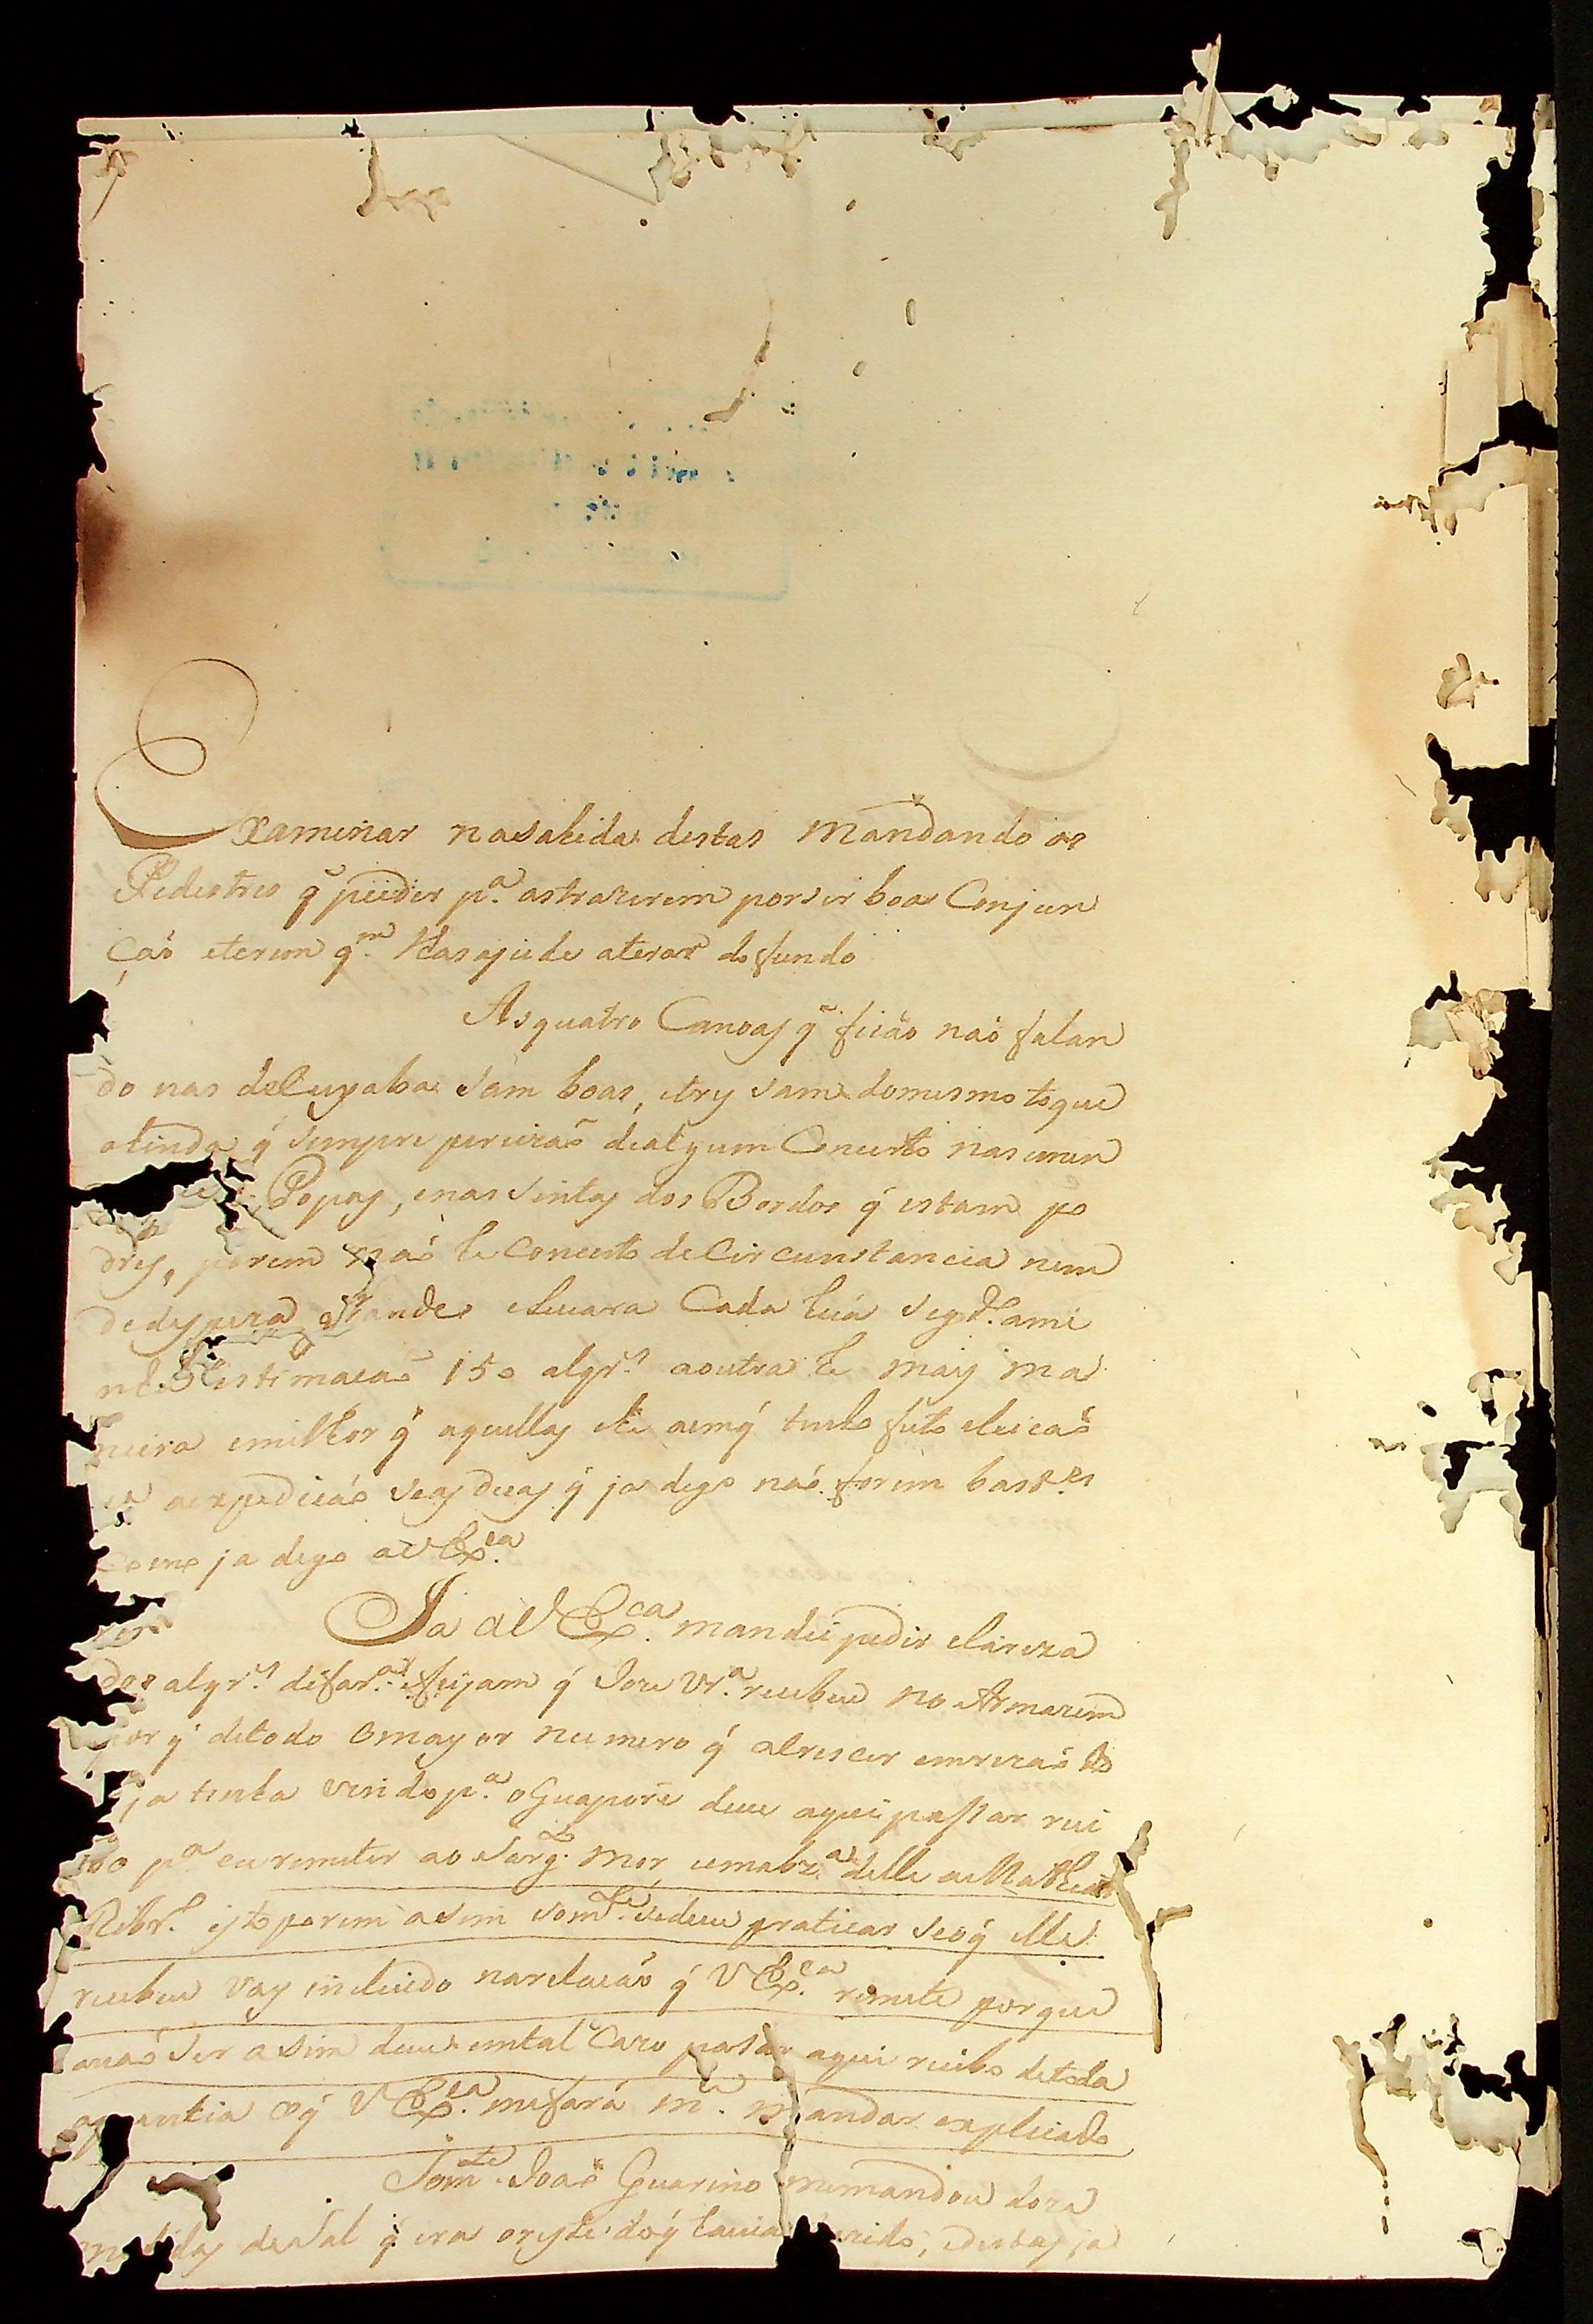 Examinar nasahida destas mandando os
Pedestres q̃ puder p.ª astrazerem porser boa Conjun
ção eterem q.m lhas ajude atirar do fundo
As quatro Canoas q̃ ficão naõ falan
do nas deCuyaba sam boas, etres sam domesmo toque
ainda q̃ sempre percizaõ dealgum Concerto nas
Popas, enas sintas dos Bordos q̃ estam po
dres, porem naõ he Concerto deCircunstancia nem
dedespeza grande eLevara Cada huã seg.do ami
estimacaõ 150 alqr.s aoutra he mais ma
neira emilhor q̃ aquellas he aemq̃ tinha feito eleicaõ
aexpedicaõ seas duas q̃ ja digo naõ forem bast.es
Como ja digo aV Ex.ca
Ja aV Ex.ca mandei pedir clareza
dos alqr.s defar.a efeijam q̃ Joze Vr.a recebeu no Armazem
por q̃ detodo omayor numero q̃ alrescer emrezaõ do
ja tinha vindo p.a oGuapore deve aqui passar reci
bo p.a euremeter ao Sarg.to mor, demabr.a delle aMatheus
Ribr.o isto porem asim som.te sedeve praticar seoq̃ elle
recebeu vay incluido narelacaõ q̃ V Ex.ca remete porque
anaõ ser asim deve emtal Cazo passar aqui recibo detoda
aquantia oq̃ V Ex.ca mefará m.ce mandar explicado
Som.te Joaõ Guarino memandou doze
medidas desal q̃ era oreste doq̃ havia, edestas ja